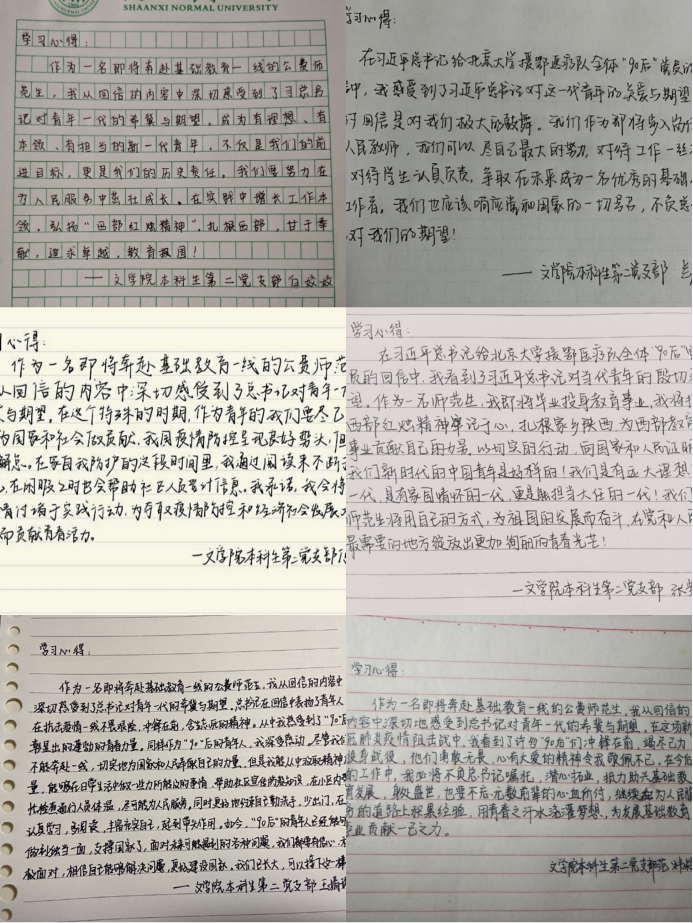 SHAANXI NORMAL UNIVERSITY
学习心得：
作为一名即将奔赴基础教育一线的公费师
范生，我从回信的内容中深切感受到了习总书
记对青年一代的希冀与期望。成为有理想、有
本领、有担当的新一代青年，不仅是我们的前
进目标，更是我们的历史责任。我们要努力在
为人民服务中茁壮成长，在实践中增长工作本
领，弘扬“西部红烛精神”，扎根西部，甘于奉
献，追求卓越，教育报国！
——文学院本科生第二党支部
学习心得：
在习近平总书记给北京大学援鄂医疗队全体“90后”党员的
中，我感受到了习近平总书记对这一代青年的关爱与期望
回信是对我们极大的鼓舞。我们作为即将步入岗位
人民教师，我们可以尽自己最大的努力，对待工作一丝
对待学生认真负责，争取在未来成为一名优秀的基础
工作者。我们也应该响应党和国家的一切号召，不负总
对我们的期望！
——文学院本科生第二党支部
心得：
作为一名即将奔赴基础教育一线的公费师范
从回信的内容中深切感受到了总书记对青年一
与期望。在这个特殊的时期，作为青年的我们要尽己
为国家和社会做贡献。我国疫情防控呈现良好势头，但
懈怠。在家自我防护的这段时间里，我通过阅读来不断
，在闲暇之时也会帮助社区人员登记信息。我承诺，我会将
付诸于实践行动，为夺取疫情防控和经济社会发展
而贡献青春活力。
—文学院本科生第二党支部
学习心得：
在习近平总书记给北京大学援鄂医疗队全体“90后”
员的回信中，我看到了习近平总书记对当代青年的殷切
望。作为一名师范生，我即将毕业投身教育事业，我将把
西部红烛精神牢记于心，扎根家乡陕西，为西部教育
事业贡献自己的力量，以切实的行动，向国家和人民证明
我们新时代的中国青年是好样的！我们是有远大理想
一代，具有家国情怀的一代，更是能担当大任的一代！我们
师范生将用自己的方式，为祖国的发展而奋斗，在党和人民
最需要的地方绽放出更加绚丽的青春光芒！
—文学院本科生第二党支部
学习心得：
作为一名即将奔赴基础教育一线的公费师范生，我从回信的内容中
深切感受到了总书记对青年一代的希冀与期望。总书记在回信中表扬了青年人
在抗击疫情一线不畏艰险，冲锋在前，舍生忘死的精神。从中我感受到了“90后”
彰显出的蓬勃的青春力量，同样作为“90后”的青年人，我深受感动，尽管我们
不能奔赴一线，切实地为国家和人民奉献自己的力量，但是我能从中汲取精神
量，能够在日常生活中做一些力所能及的事情，帮助社区宣传防疫知识，在小区
检查通行人员体温，尽可能为人民服务。同时更应做到自主勤洗手，少出门，在
认真学习，多阅读，丰富充实自己，起到带头作用。如今，“90后”的青年人已经能够
做到独当一面，支撑国家了，面对未来可能遇到的各种问题，我们都要有信心，
敢面对，相信自己能够解决问题，更好建设国家。我们已长大，可以接下这一棒
——文学院本科生第二党支部
学习心得：
作为一名即将奔赴基础教育一线的公费师范生，我从回信的
内容中深切地感受到总书记对青年一代的希冀与期望。在这场新
冠肺炎疫情阻击战中，我看到了许许“90后”们冲锋在前，竭尽己力
投身战役，他们勇敢无畏、心有大爱的精神令我敬佩不已，在今后
的工作中，我必将不负总书记嘱托，潜心拓业，担力助兴基础教
育发展，躬处盛世，也要不忘无数前辈的心血所付，继续在为人民服
务的道路上积累经验，用青春之汗水浇灌梦想，为发展基础教育
事业贡献一己之力。
文学院本科生第二党支部